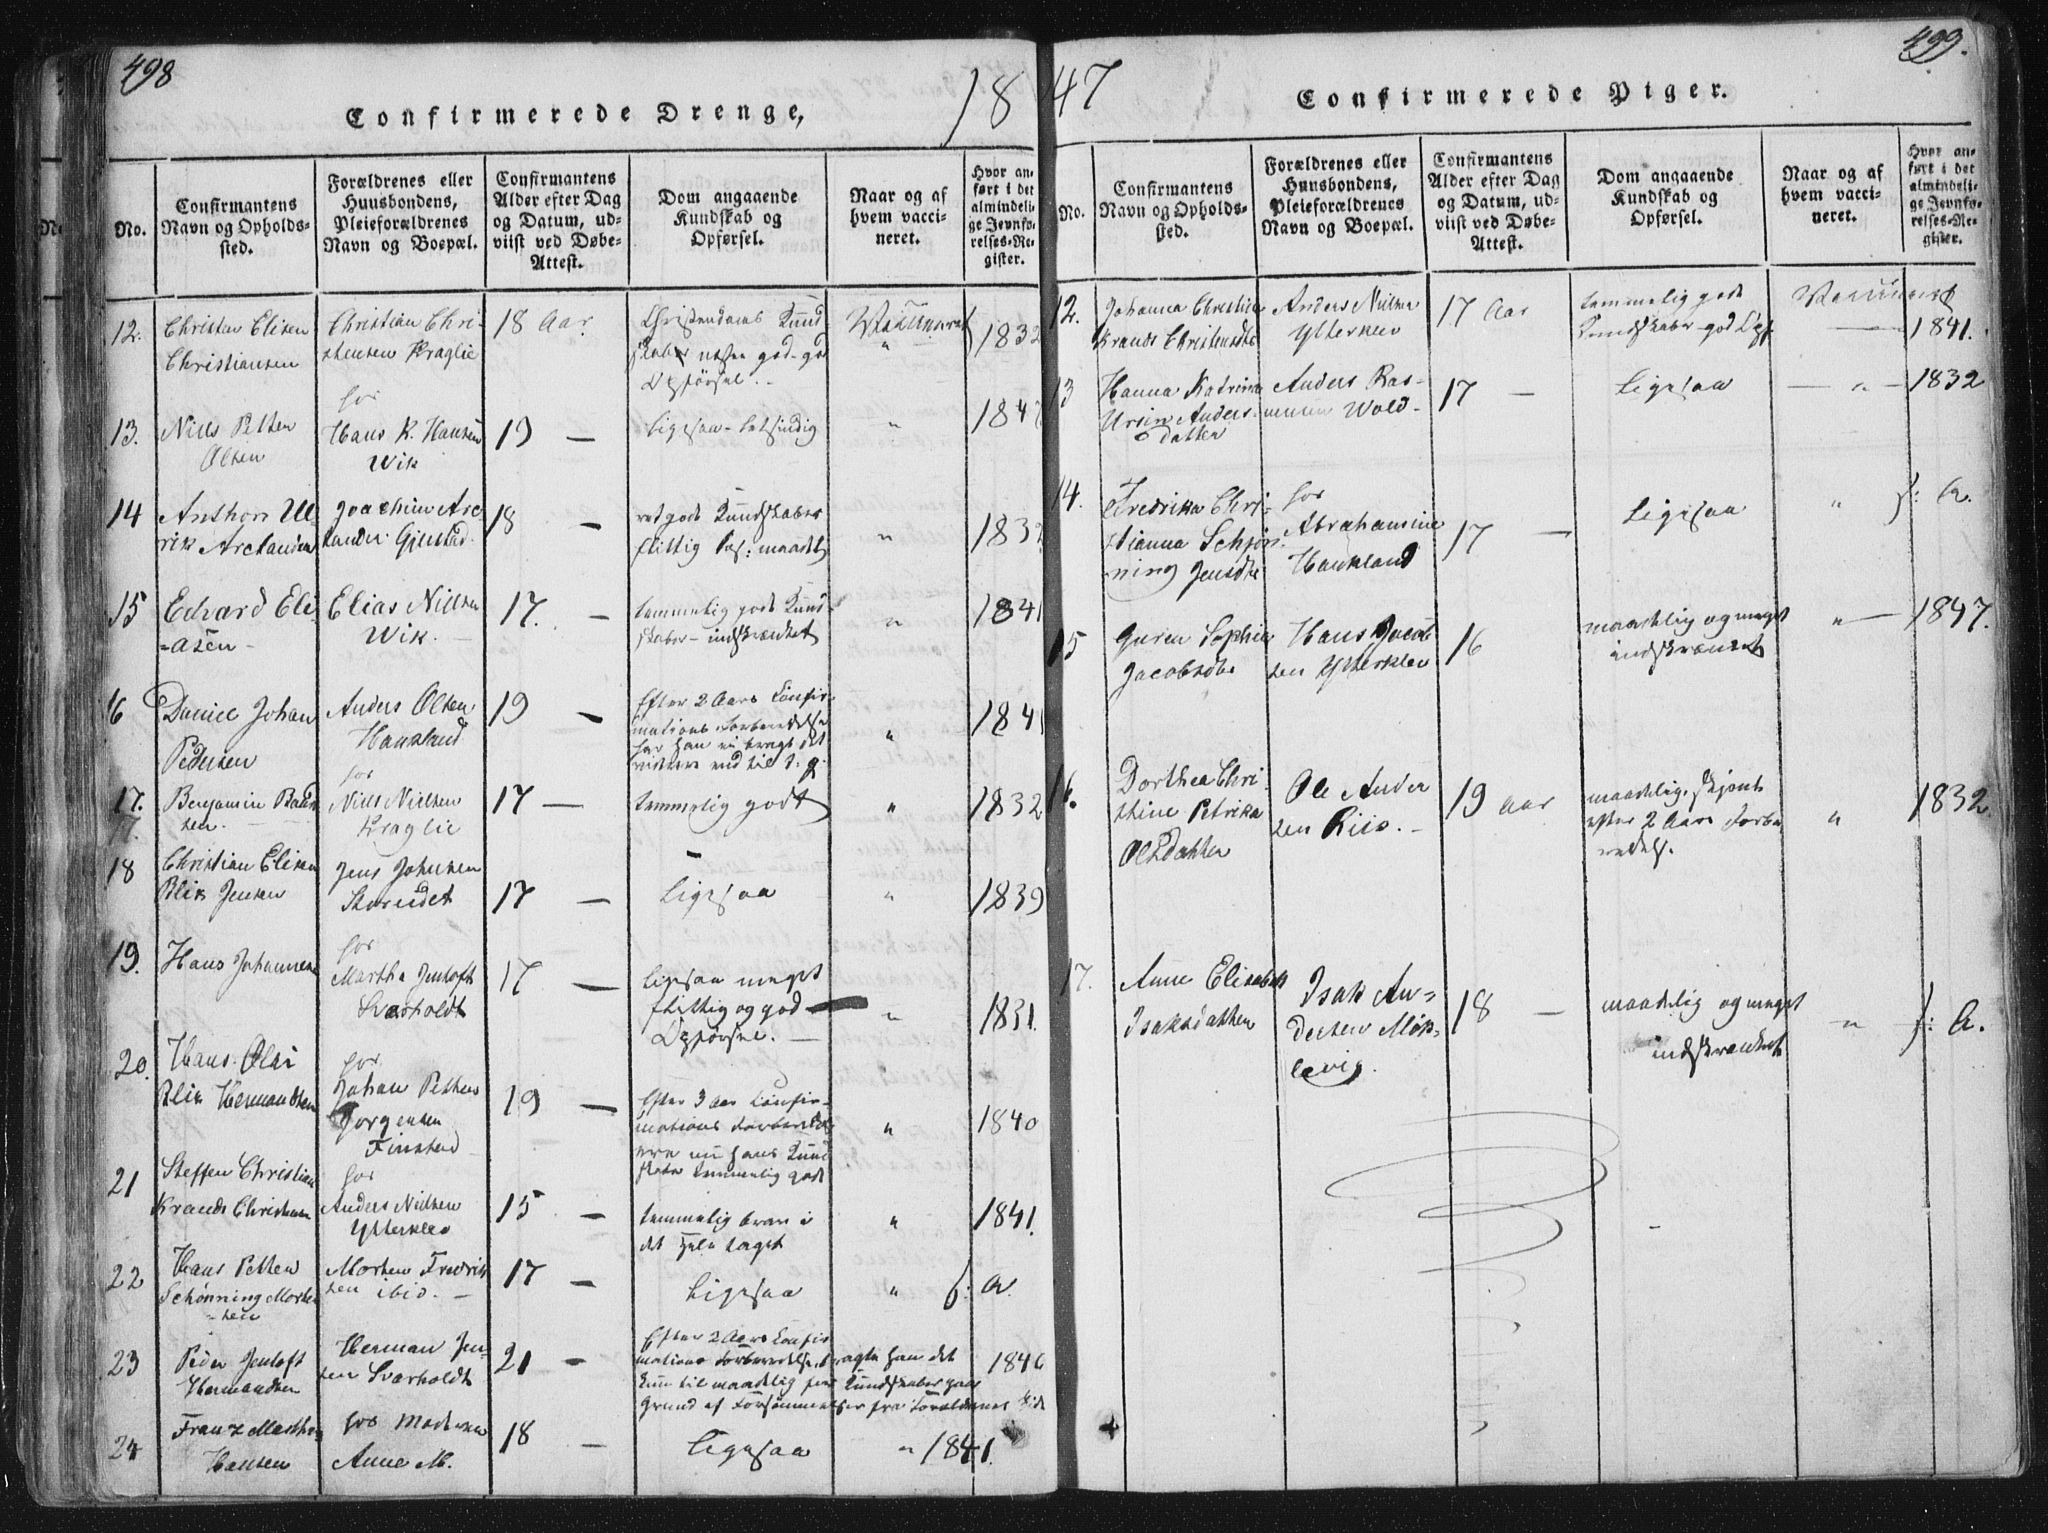 498
Confirmerede Drenge,
18
No.
Confirmantens
Navn og Opholds-
sted.
Forældrenes eller
Huusbondens,
Pleieforældrenes
Navn og Boepæl.
Confirmantens
Alder efter Dag
og Datum, ud-
viist ved Døbe-
Attest.
Dom angaaende
Kundskab og
Opførsel.
Naar og af
hvem vacci-
neret.
Hvor an-
ført i det
almindeli-
ge Jevnfø-
relses-Re-
gister.
12. Christen Elisen
Christiansen
Christian Chri-
stensen Kraglie
18 Aar
Christendoms Kund
skaber god - god
Opførsel. -
Vaccineret
1832
13. Niels Petter
Olsen
hos
Hans K. Hansen
Wik
19 —
Ligesaa - letsindig
"
1847
14 Anthon Ul-
rik Arctander
Joachim Arc-
tander Gjerstad
18 —
ret gode Kundskaber
flittig Opf: maadel
"
1832
15 Edvard Eli-
-asen -
Elias Nielsen
Wik. -
17. —
temmelig gode Kund-
skaber - indskrænket
"
1841
16 Daniel Johan
Pedersen
Anders Olsen
Haukland
19 —
Efter 2 Aars Confir-
mations Forberedelse
har han ei bragt det
videre end til t. g.
"
1841
17. Benjamin
sen.
17.
hos
Niels Nielsen
Kraglie
17 —
temmelig godt
"
1832
18 Christian Elisen
Blix Jensen
Jens Johnsen
17 —
Ligesaa
"
1839
19. Hans Johannesen
hos
Martha Jentoft
Svarholdt
17 —
Ligesaa meget
flittig og god
Opførsel. —
"
1831.
20. Hans Olai
Blix Hermandsen
hos
Johan Petter
Jørgensen
Finstad
19 —
Efter 3 Aar Confir-
mations Forberedelse
ere nu hans Kund
skaber temmelig gode
"
1840
21 Steffen Christian
Krands Christensen
hos
Anders Nielsen
Ytterklev
15 —
temmelig brav i
det hele taget
"
1841.
22 Hans Petter
Schønning Morten
-sen
Morten Fredrik
sen ibid. -
17 —
Ligesaa
" f: A.
23 Peder Jentoft
Hermandsen
Herman Jen-
sen Svarholdt
21 —
Efter 2 Aars Confir
mations Forberedelse, bragte han det
kun til maadelig Kundskaber paa
Grund af Forsømmelser fra Forældrenes Side
1846
24 Franz Marthin
Hansen
hos Moderen
Anne M.
18 —
Ligesaa
" 1841.
47
499.
Confirmerede Piger.
No.
Confirmantens
Navn og Opholds-
sted.
Forældrenes eller
Huusbondens,
Pleieforældrenes
Navn og Boepæl.
Confirmantens
Alder efter Dag
og Datum, ud-
viist ved Døbe-
Attest.
Dom angaaende
Kundskab og
Opførsel.
Naar og af
hvem vacci-
neret.
Hvor an-
ført i det
almindeli-
ge Jevnfø-
relses-Re-
gister.
12. Johanna Christine
Krands Christensdtr
Anders Nielsen
Ytterklev
17 Aar
temmelig gode
Kundskaber god Opf.
Vaccineret
— 1841.
13 Hanna Katrina
Ursin Anders-
datter
Anders Ras-
mussen Wold -
17 —
Ligesaa
— " — 1832
14. Fredrika Chri-
stianna Schjøn-
ning Jensdtr
hos
Abrahamine
Haukland
17 —
Ligesaa
" f: A.
15 Guren Sophia
Jacobsdtr
Hans Jacob
sen Ytterklev
16
maadelig og meget
indskrænket
" — 1847.
16. Dorthea Chri-
stine Petrika
Olsdatter
Ole Ander
sen Riis. -
19 Aar
maadelig, skjønt
efter 2 Aars Forbe
redelse.
"
1832.
17. Anne Elisabeth
Isaksdatter
Isak An-
dersen Mør-
kevig.
18 —
maadelig og meget
indskrænket
— " — f: A.